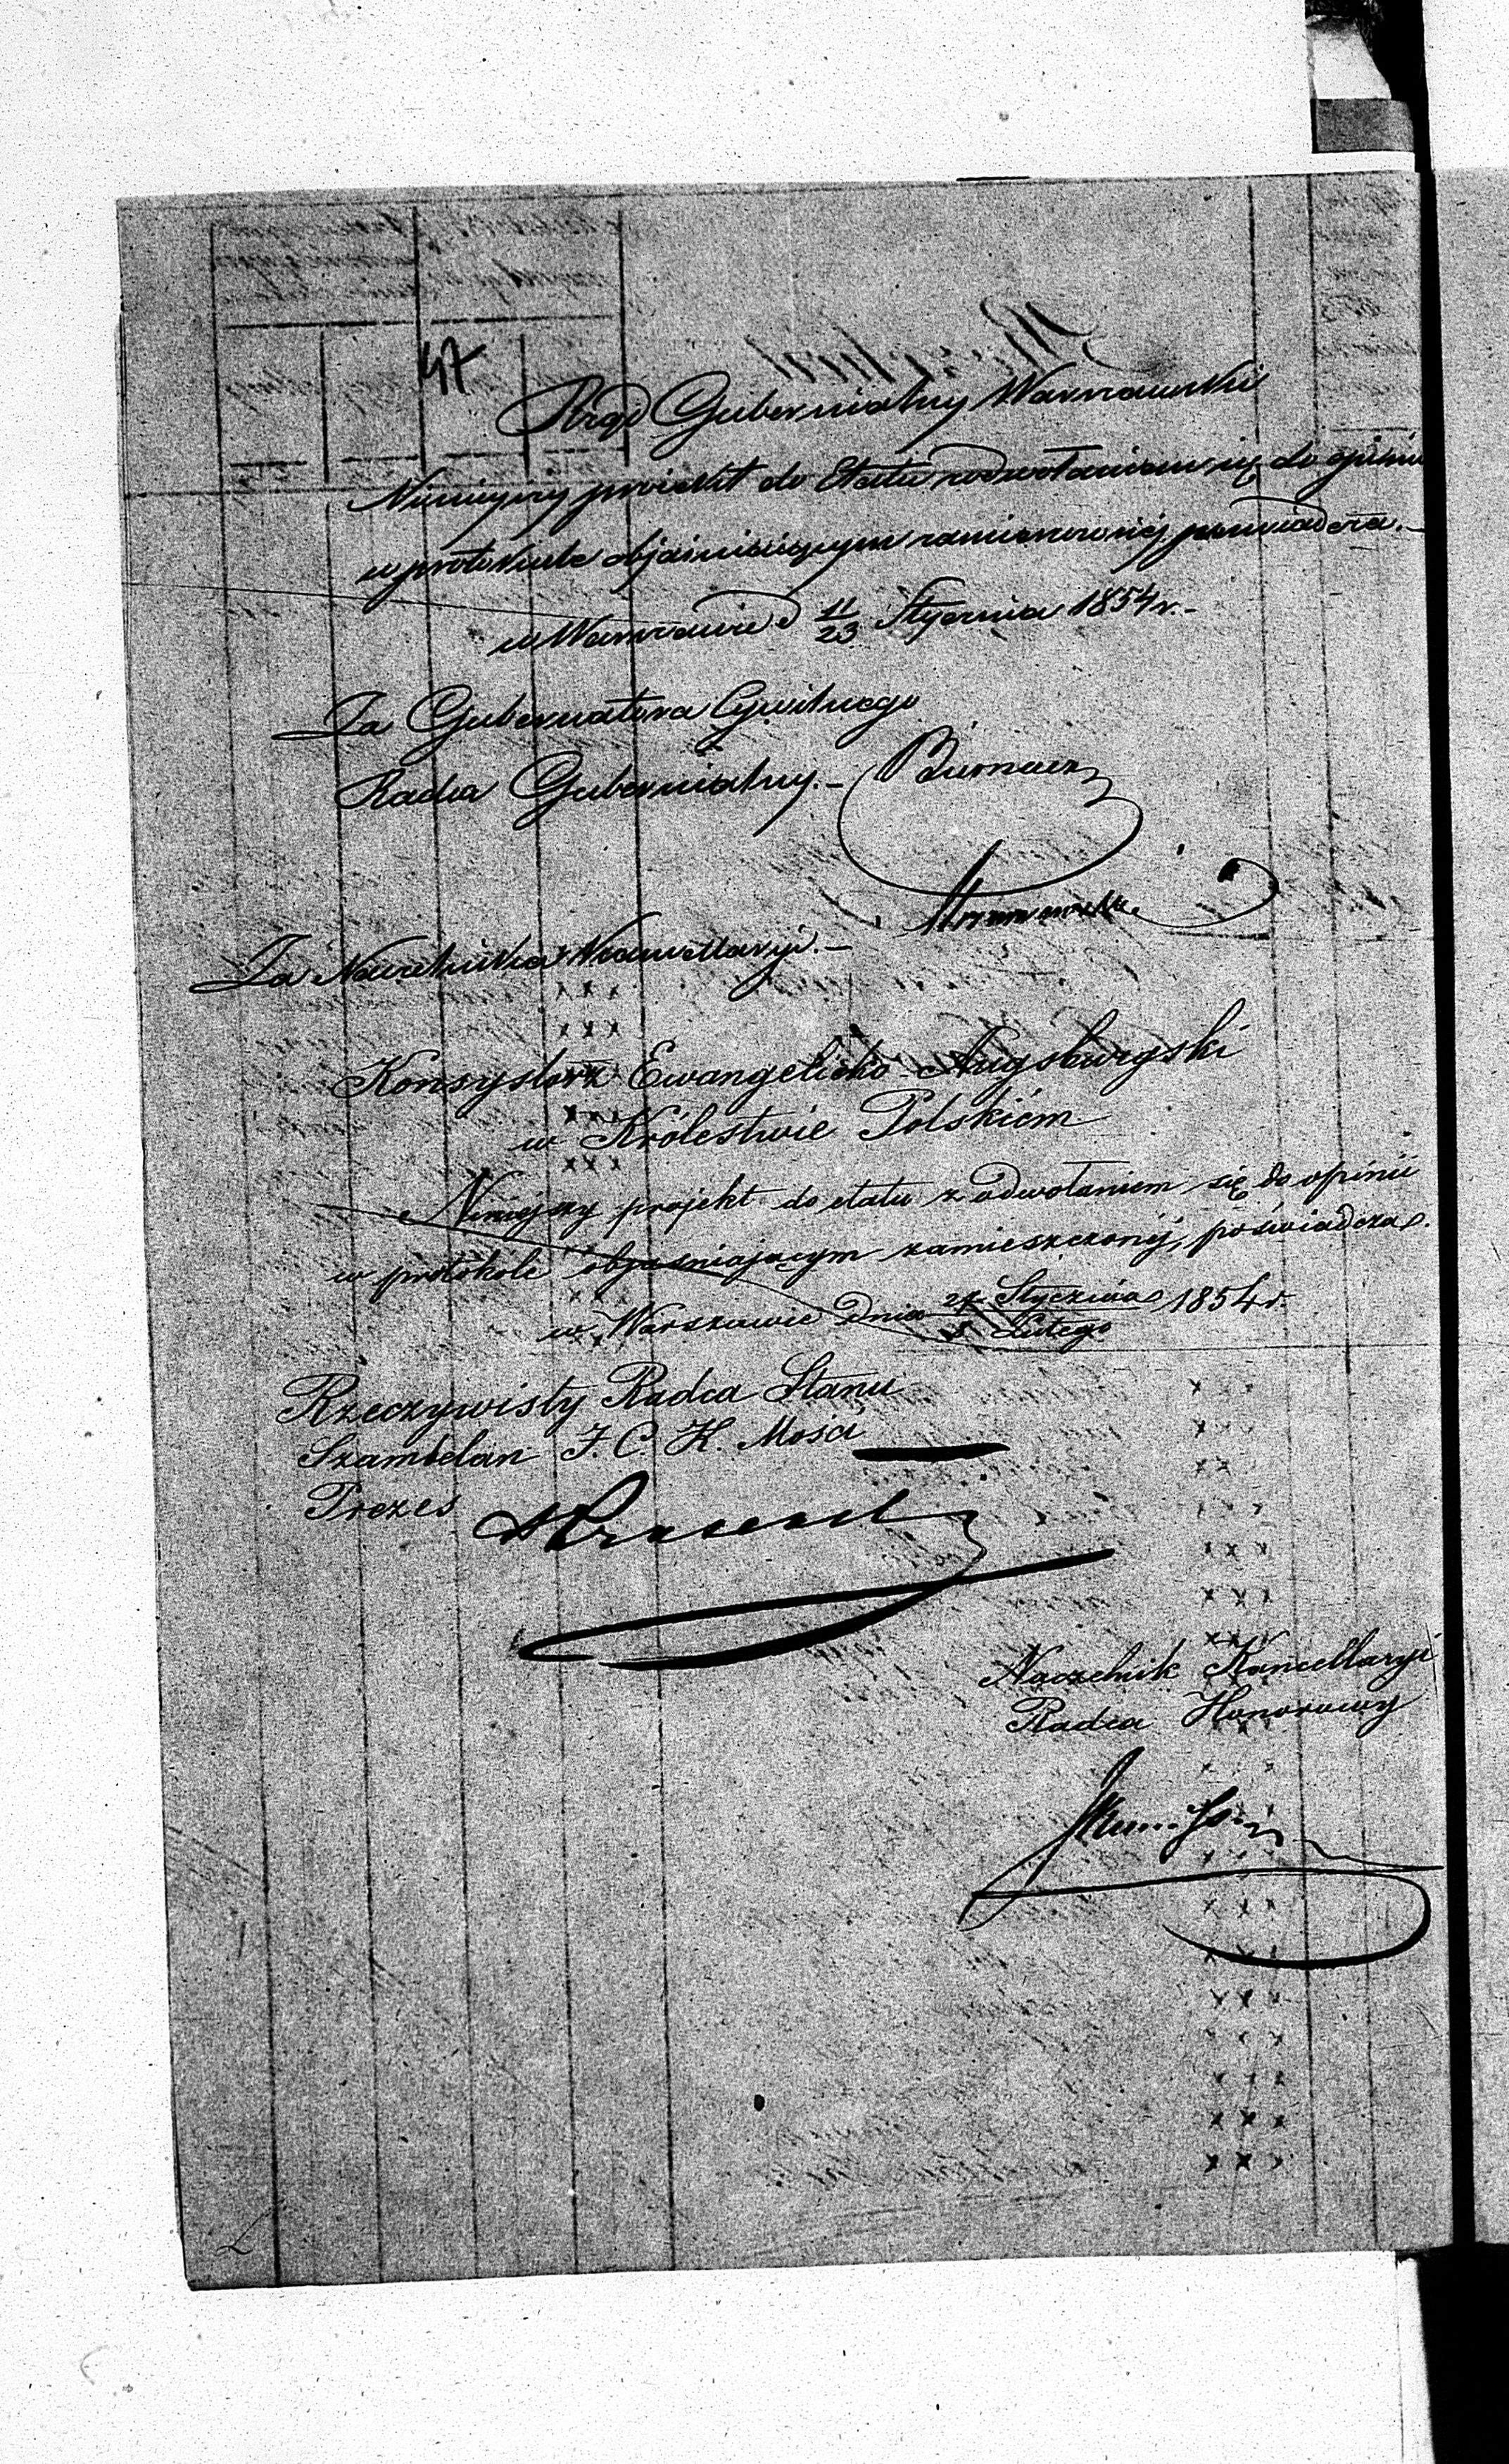 47
Rząd Gubernialny Warszawski
Niniejszy proiekt do Etatu z odwołaniem się do opinii
w protokule objaśniaiącym zamieszczonej poswiadcza.—
w Warszawie d 11/23 Stycznia 1854 r.—
Za Gubernatora Cywilnego
Radca Gubernialny.—
Za Naczelnika Kancellaryi.—
Konsystorz Ewangelicko Augsburgski
w Królestwie Polskiém
Niniejszy projekt do etatu z odwołaniem się do opinii
w protokole objaśniającym zamieszczonéj, poświadcza.
w Warszawie dnia Stycznia/Lutego 1854 r.
Rzeczywisty Radca Stanu
Szambelan J. C. K. Mości
Prezes
Naczelnik Kancellaryi
Radca Honorowy